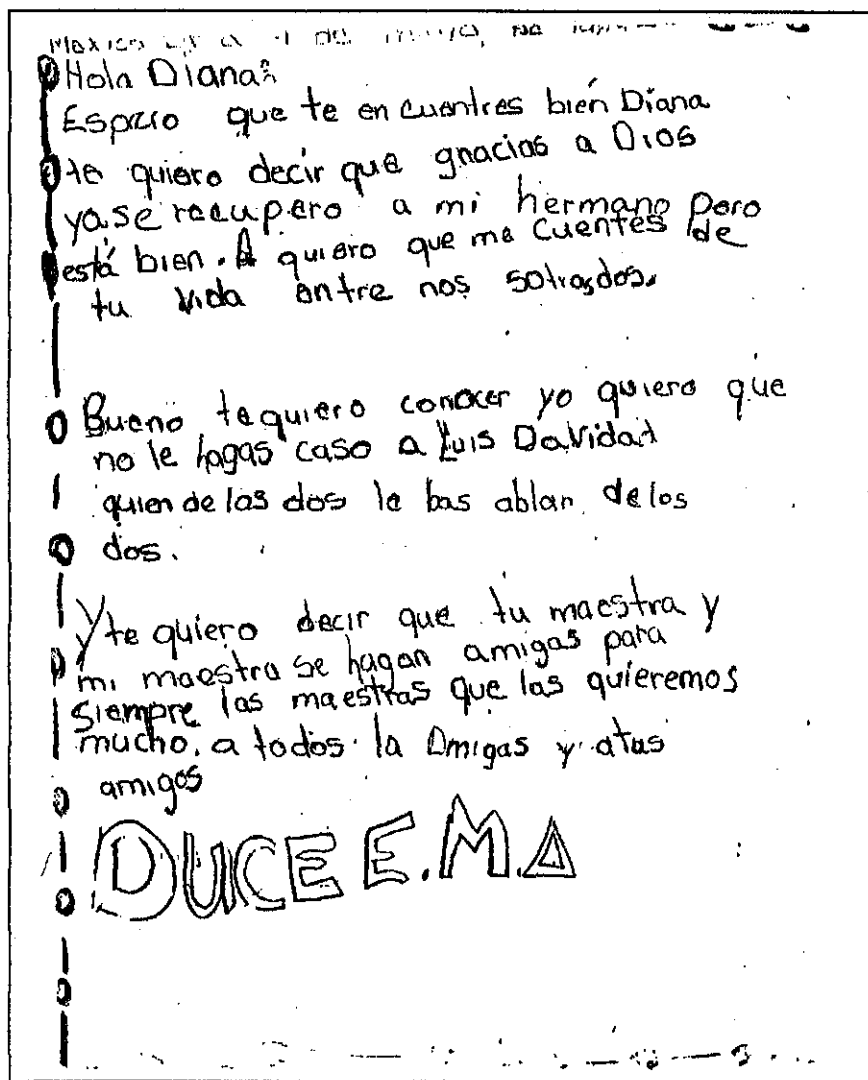 Mexico a de mayo,
Hola Diana:
Espero que te en cuentres bien Diana
te quiero decir que gracias a Dios
ya se recupero a mi hermano pero
está bien. A quiero que me cuentes de
tu vida entre nos sotrosdos.
Bueno te quiero conocer yo quiero que
no le hagas caso a Luis David
quien de las dos le bas ablar de los
dos.
Y te quiero decir que tu maestra y
mi maestra se hagan amigas para
siempre las maestras que las quieremos
mucho. a todos la Amigas y atus
amigos
DUCE E.M.A